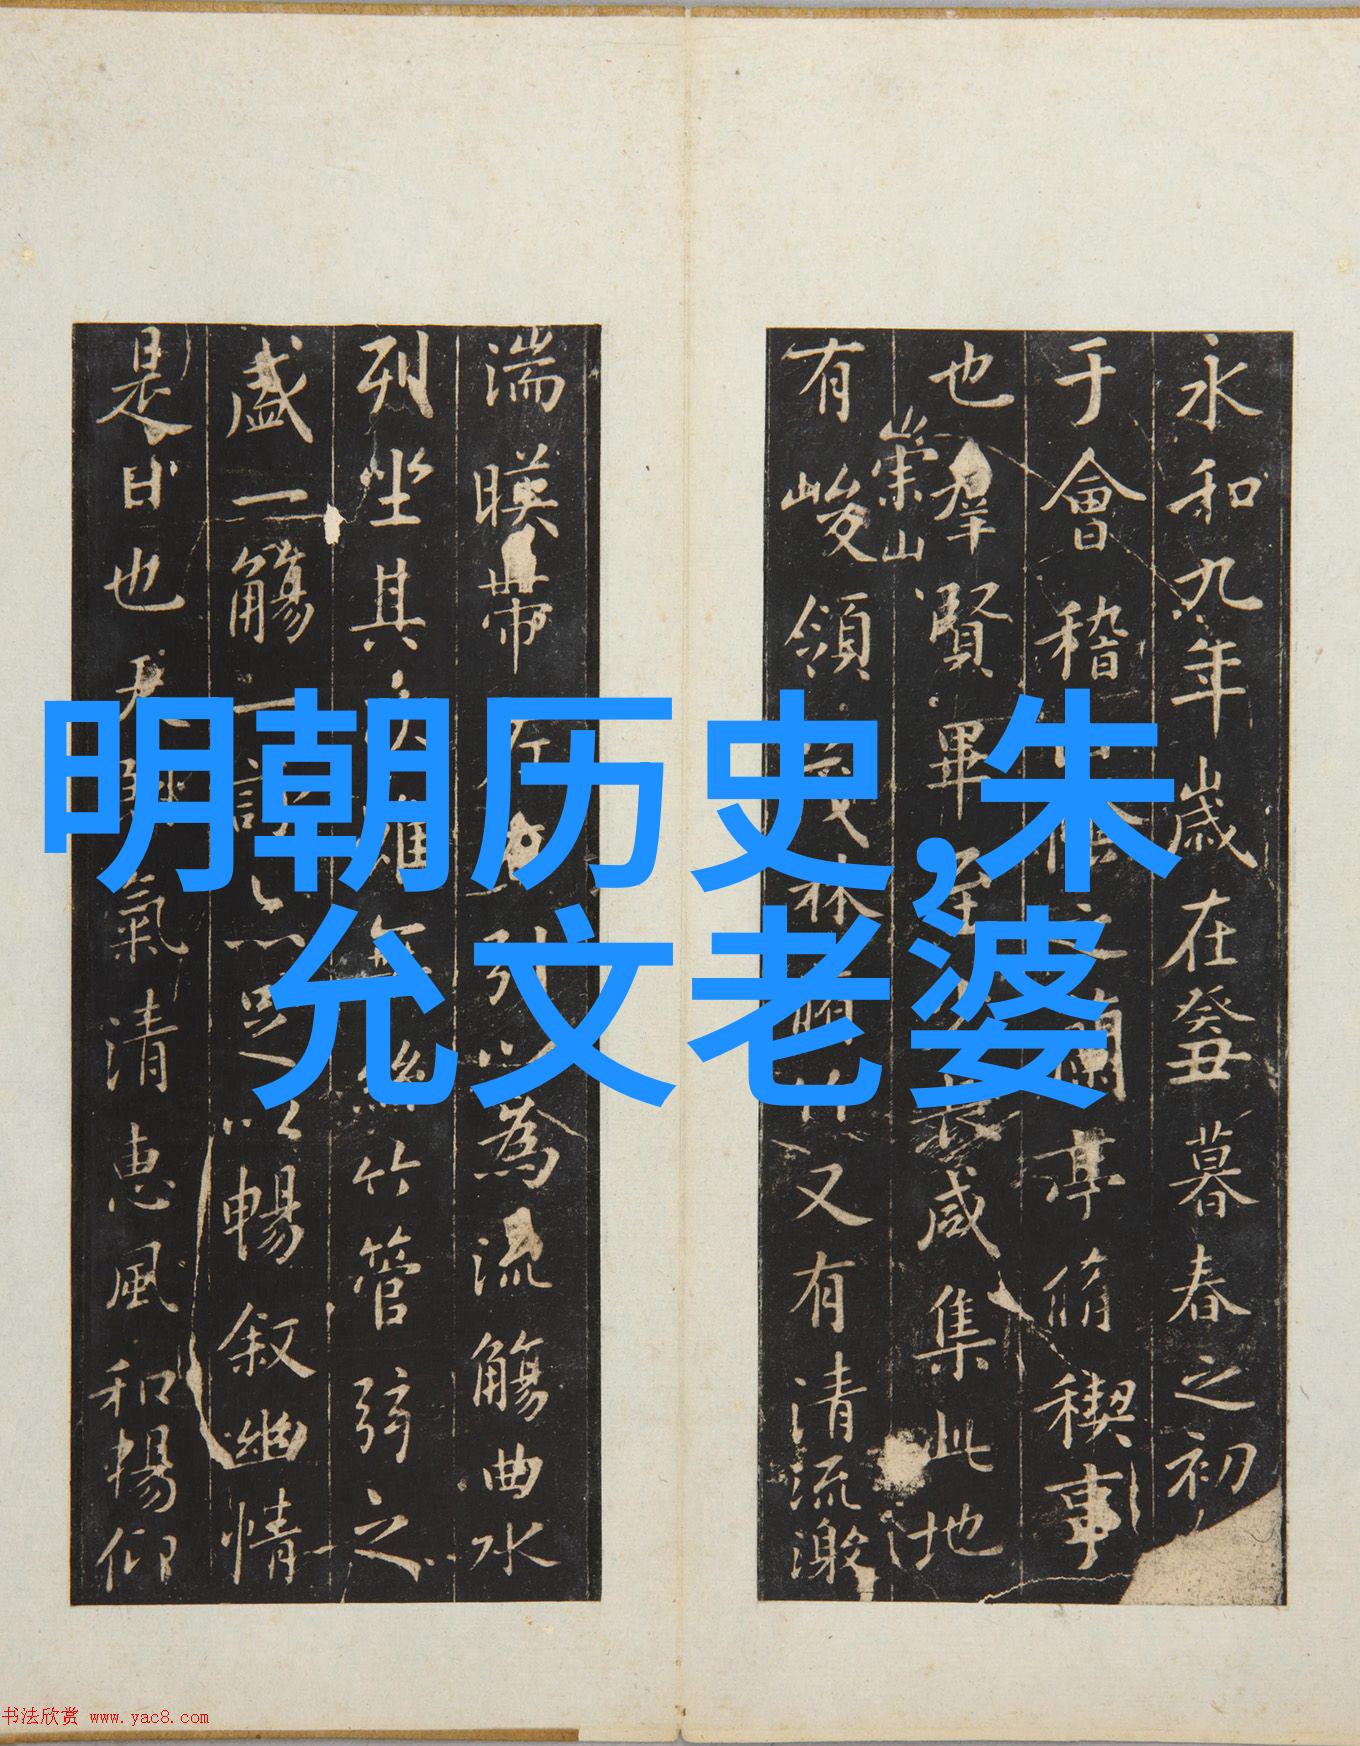 明朝历史,朱
允文老婆
永和九年歲在癸丑暮春之初
于會稽山陰之蘭亭脩稧事
也羣賢畢至少長咸集此地
崇山
有峻領茂林脩竹又有清流激
湍暎帶左右引以為流觴曲水
列坐其次雖無絲竹管弦之
盛一觴一詠亦足以暢叙幽情
是日也天朗氣清惠風和暢仰
书法欣赏 www.yac8.com